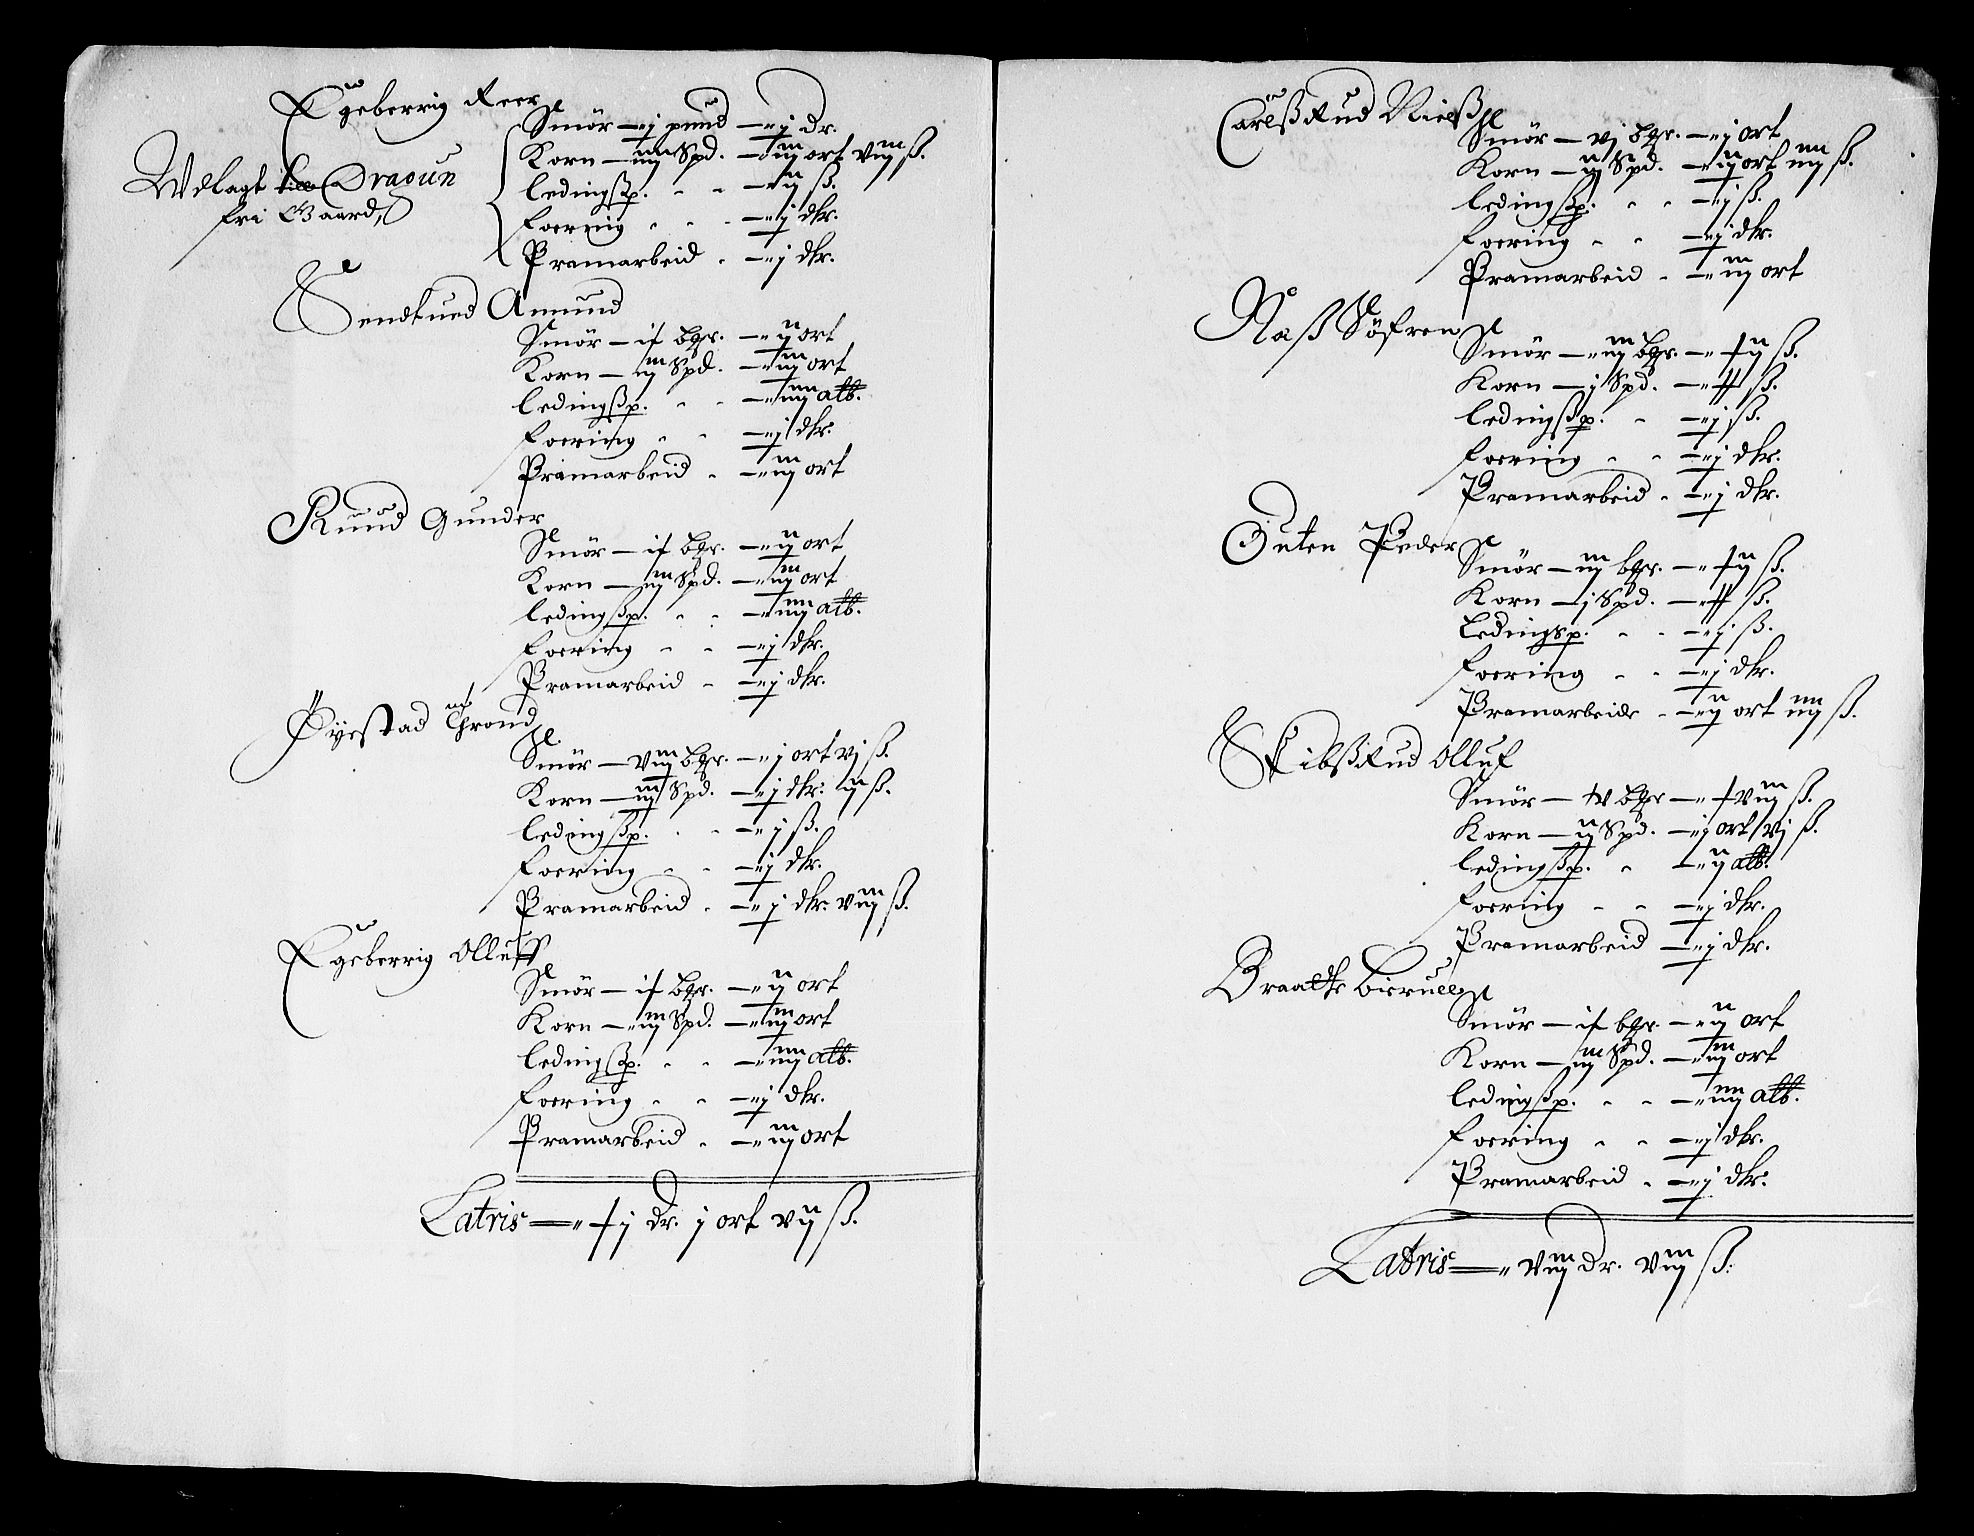 Egeberrig Reer
Wdlagt till Dragun
fri Gaard,
Smör — j pund — j dr.
Korn — iiij Spd. — iij ort viij ß.
ledingßp. — ij ß.
foering — j dkr.
Pramarbeid — j dkr.
Sendtued Amund
Smör — if bpr. — ij ort
Korn — iij Spd. — iij ort
ledingßp. — iiij alb.
foering — j dkr.
Pramarbeid — iij ort
Ruud Gunder
Smör — if bpr. — ij ort
Korn — iij Spd. — iij ort
ledingßp. — iiij alb.
foering — j dkr.
Pramarbeid — j dkr.
Öÿestad Thrond
Smör — viij bpr. — j ort vj ß.
Korn — iiij Spd. — j dkr. ij ß.
ledingßp. — j ß.
foering — j dkr.
Pramarbeid — j dkr. viij ß.
Egeberrig Olluff
Smör — if bpr. — ij ort
Korn — iij Spd. — iij ort
ledingßp. — iiij alb.
foering — j dkr.
Pramarbeid — iij ort
Latris — xj dr. j ort vij ß.
Carlßrud Nielß
Smör — vj bpr. — j ort
Korn — ij Spd. — ij ort iiij ß.
ledingßp. — j ß.
foering — j dkr.
Pramarbeid — iij ort
Naß Söfren
Smör — iij bpr. — xij ß.
Korn — j Spd. — xx ß.
ledingßp. — j ß.
foering — j dkr.
Pramarbeid — j dkr.
Guten Peder
Smör — iij bpr. — xij ß.
Korn — j Spd. — xx ß.
Ledingsp. — j ß.
foering — j dkr.
Pramarbeide — ij ort iiij ß.
Skibßrud Olluf
Smör — xv bpr — xviij ß.
Korn — ij Spd. — j ort vj ß.
ledingßp. — ij alb.
foering — j dkr.
Pramarbeid — j dkr.
Braatte Bierull
Smör — if bpr. — ij ort
Korn — iij Spd. — iij ort
ledingßp. — iiij alb.
foering — j dkr.
Pramarbeid — j dkr.
Latris — viij dr. viij ß: